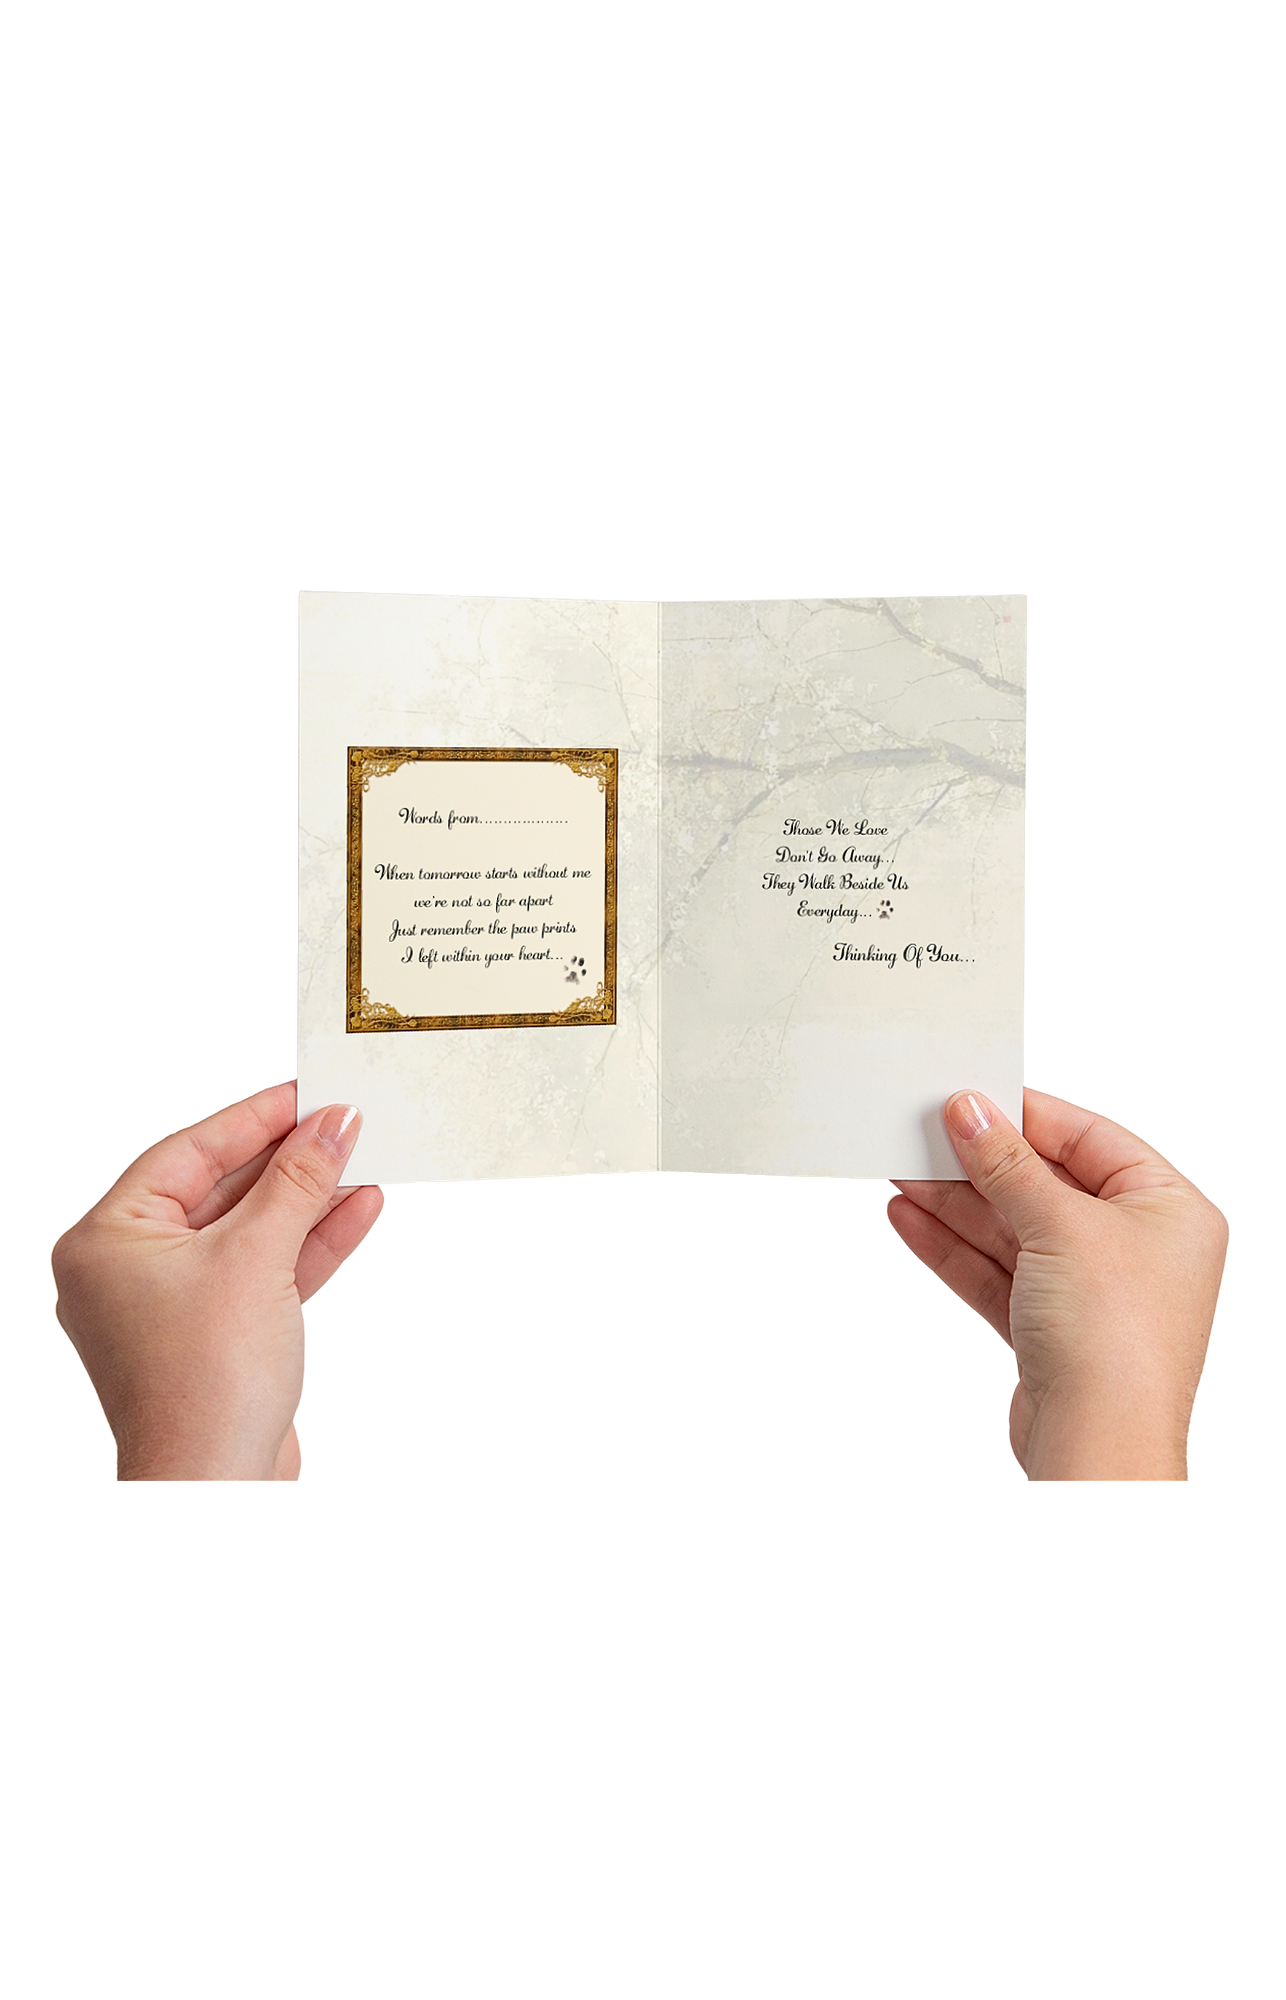 Words from...................
When tomorrow starts without me
we're not so far apart
Just remember the paw prints
I left within your heart...
Those We Love
Don't Go Away...
They Walk Beside Us
Everyday...
Thinking Of You...